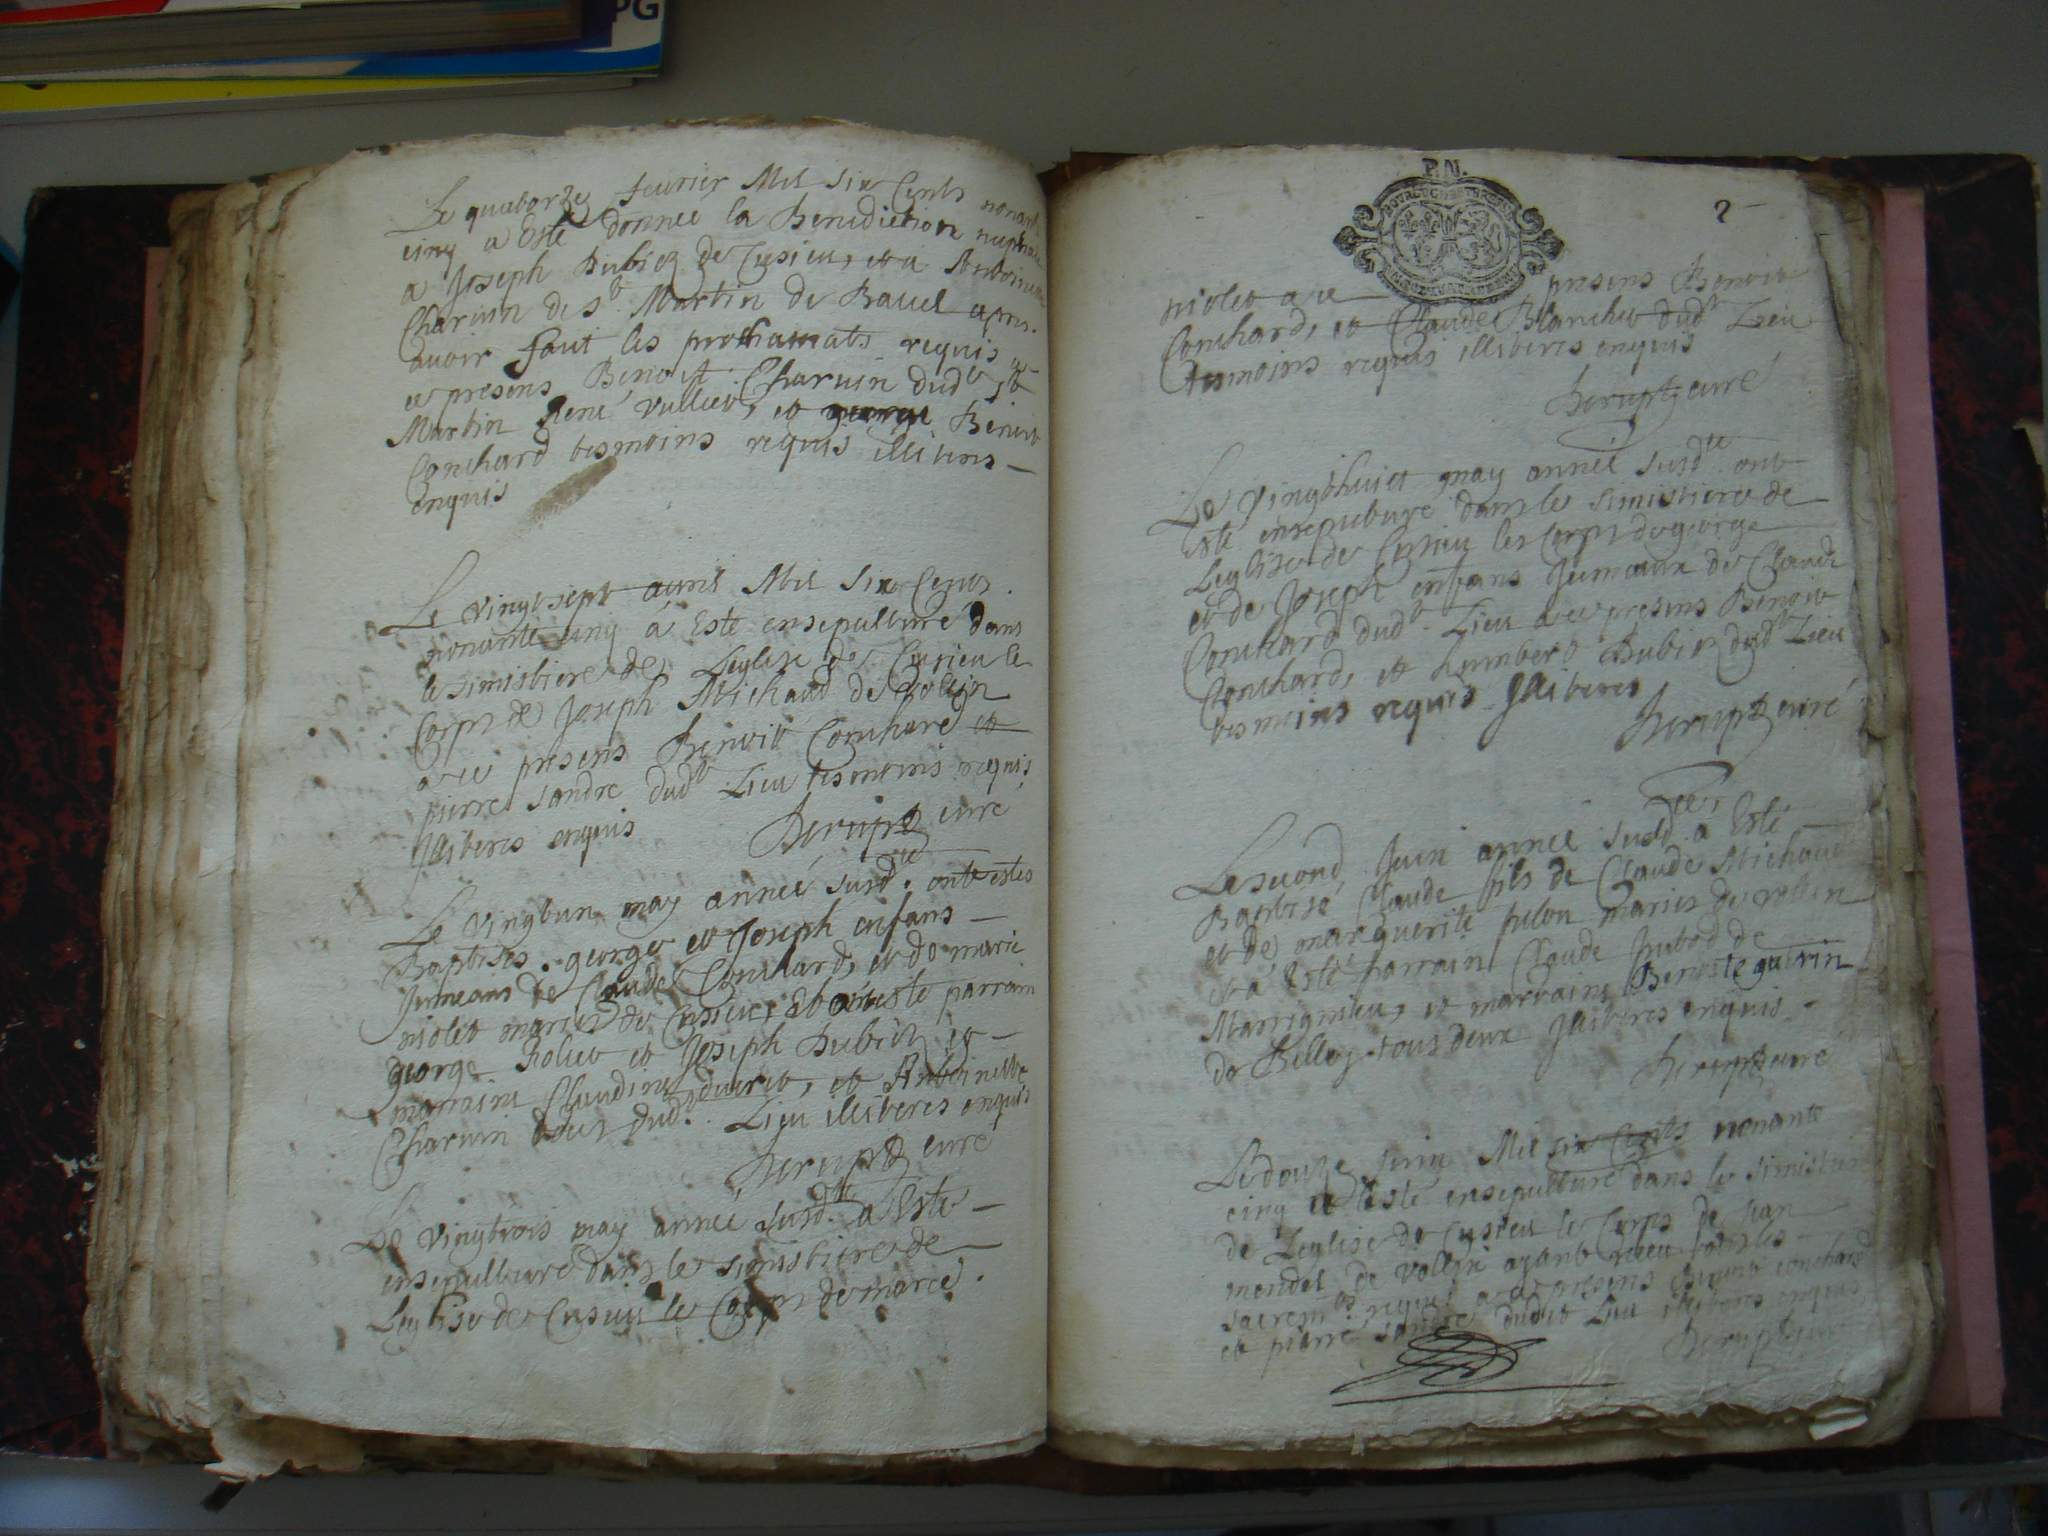 PG
Le quatorze feurier Mil six Cents nonante
cinq a Esté donnee la Benediction nuptiale
a Joseph Dubiez de Cusieu, et a Antoinette
Charuin de St. Martin de Bauel apres
auoir faut les proclamats requis a
ce presens Benoit Charuin dudt St
Martin René Vulliet, et Benoit
Conchard tesmoins requis illiteres
enquis
Le vingtsept auril Mil Six Cents
nonante cinq á Esté ensepulturé dans
le simistiere de Leglise de Cusieu le
Corps de Joseph Michaud de Vollin
a ce presens Benoit Conchard et
pierre sondre dudt Lieu tesmoins requis
Illiteres enquis curé
Le vingtun may anneé susdte ont estes
Baptises george et Joseph enfans
Jumeaux de Claude Conchard, et de marie
niolet mariez de Cusieu, Et on esté parrain
george Rolet et Joseph Dubiez et
marraine Claudine duret, et Antoinette
Charuin tous dudt Lieu illiteres enquis
curé
Le vingtrois may anneé susdte a Esté
ensepulturé dans le simistiere de
Leglise de Cusieu le Corps de marie
P.N.
2
niolet a ce presens Benoit
Conchard, et Claude Blanchet dudt Lieu
tesmoins requis illiteres enquis
curé
Le Vingthuict may anneé susdte ont
esté ensepulturé dans le simistiere de
Leglise de Cusieu les Corps de george
et de Joseph enfans Jumeaux de Claude
Conchard dudt Lieu a ce presens Benoit
Conchard, et humbert Dubiez dudt Lieu
tesmoins requis Illiteres
curé
Le second Juin anneé susdte a Esté
Baptisé Claude fils de Claude Michaud
et de marguerite pelon mariez de vollin
et á Esté parrain Claude Jubod de
Marrignieu, et marraine Benoiste guerin
de Billey tous deux Illiteres enquis
curé
Le douze Juin Mil six Cents nonante
cinq a Esté ensepulturé dans le simistiere
de Leglise de Cusieu le Corps de Jean
mendel de Vollin ayant receu tous les
sacremts requis a ce presens Benoit Conchard
et pierre sondre dudit Lieu illiteres enquis
curé